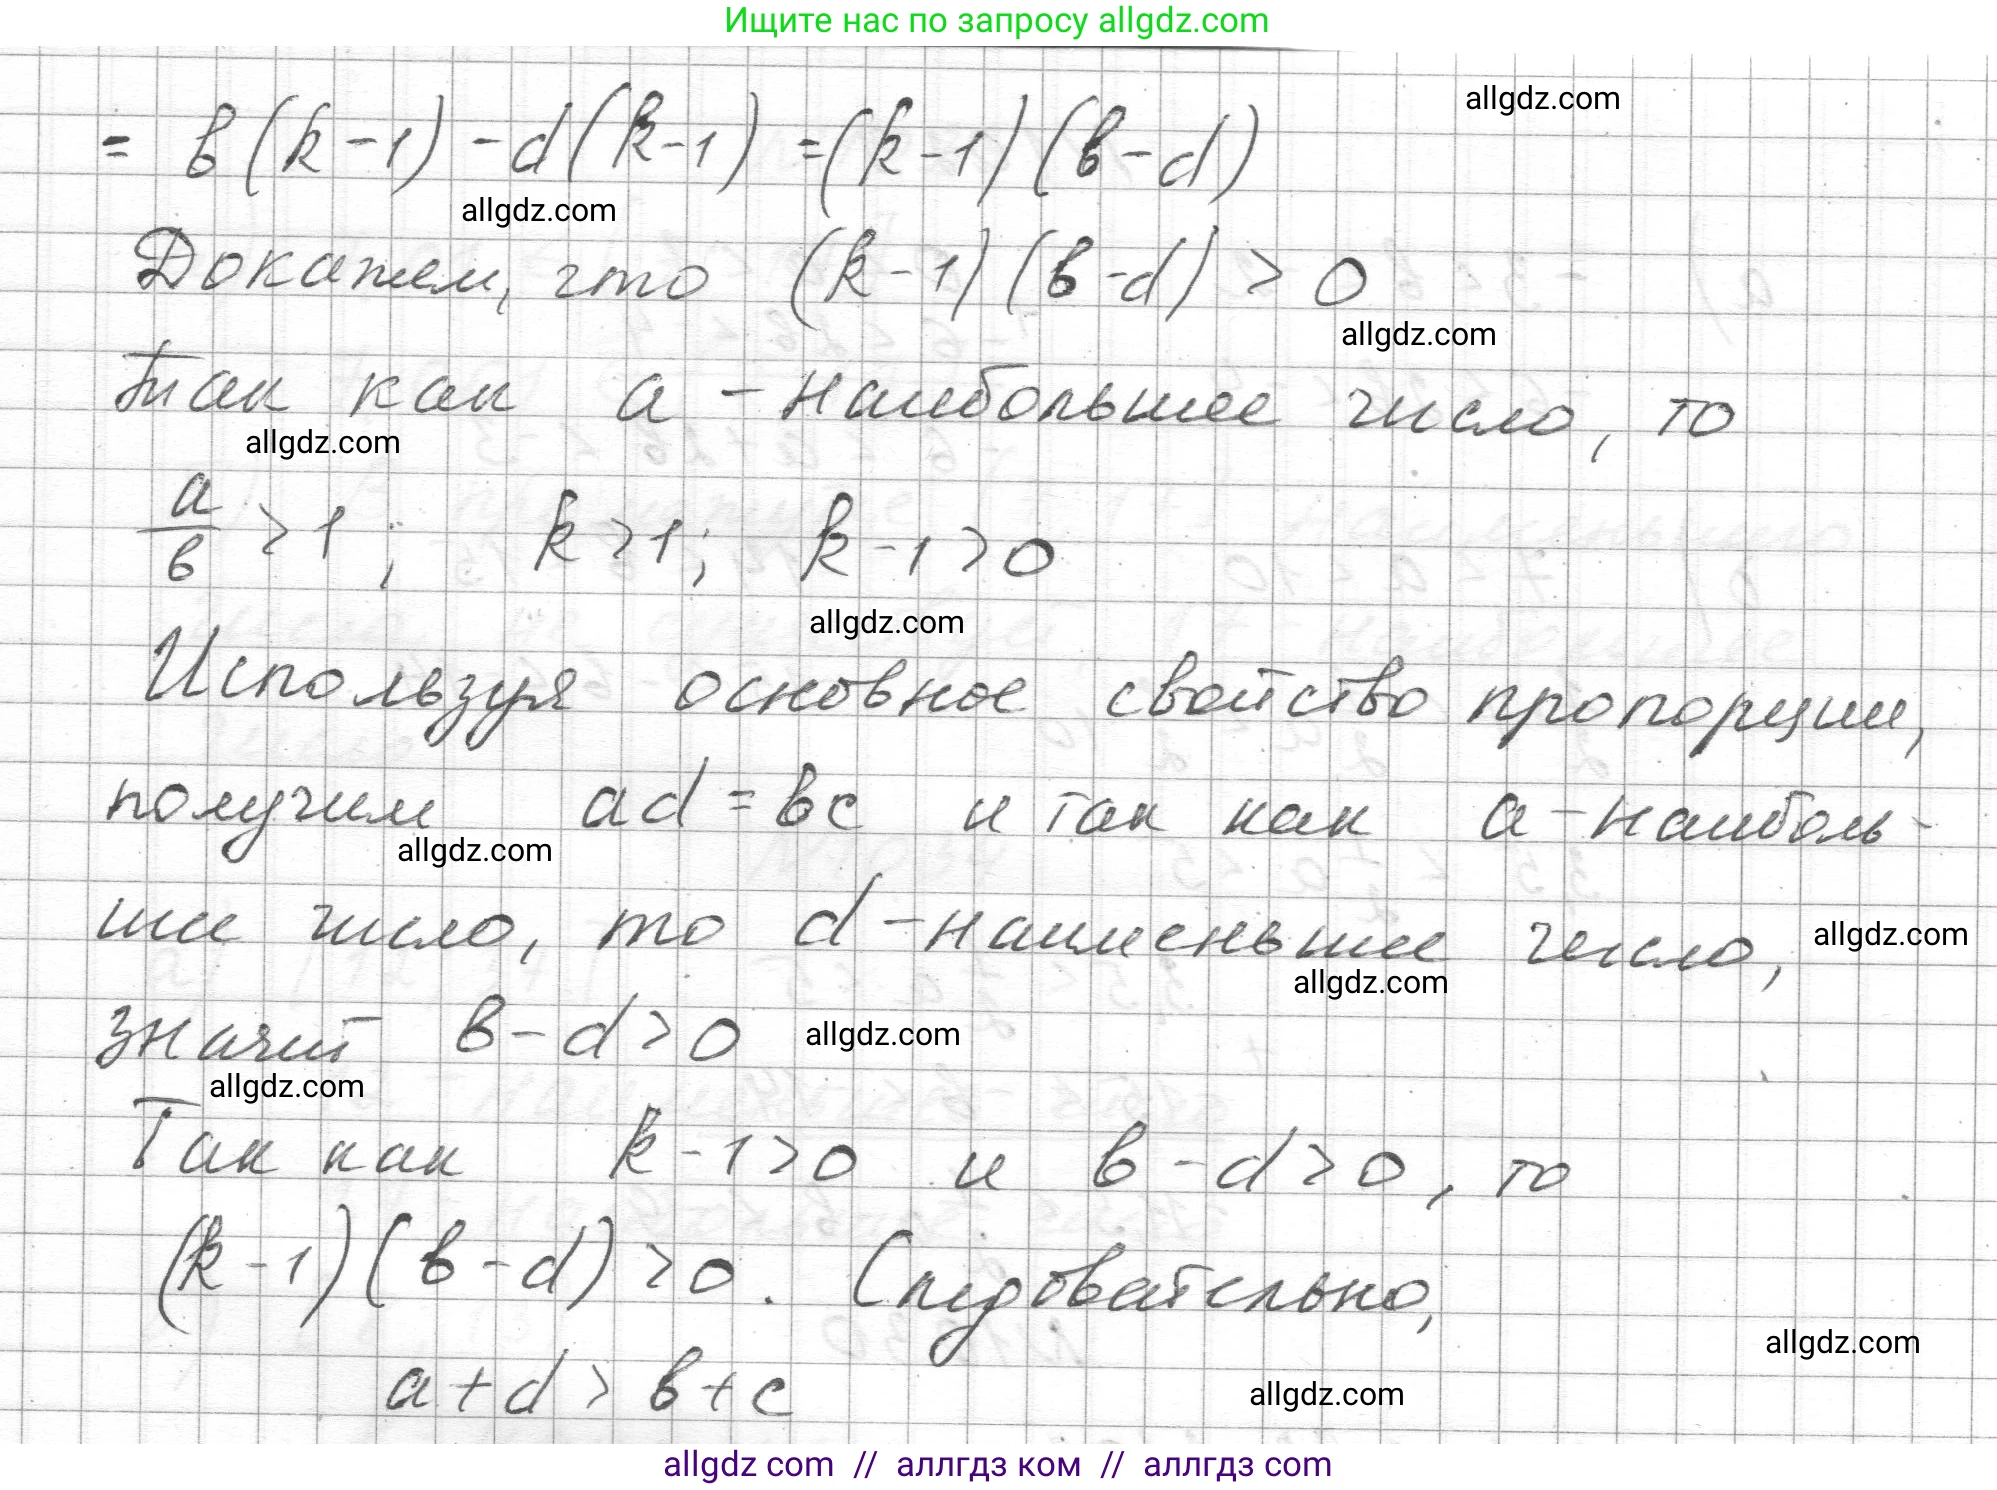 Ищите нас по запросу allgdz.com
allgdz.com
= в(k-1)-d(k-1) =(k-1)(в-d)
allgdz.com
Докажем, что (k-1)(в-d) > 0
allgdz.com
Так как а - наибольшее число, то
allgdz.com
a/в > 1; k>1; k-1>0
allgdz.com
Используя основное свойство пропорции,
получим ad = вc и так как а-наиболь-
allgdz.com
шее число, то d-наименьшее число,
allgdz.com
allgdz.com
значит в-d>0
allgdz.com
allgdz.com
Так как k-1>0 и в-d>0, то
(k-1)(в-d)>0. Следовательно,
allgdz.com
a+d > в+c
allgdz.com
allgdz com // аллгдз ком // аллгдз com